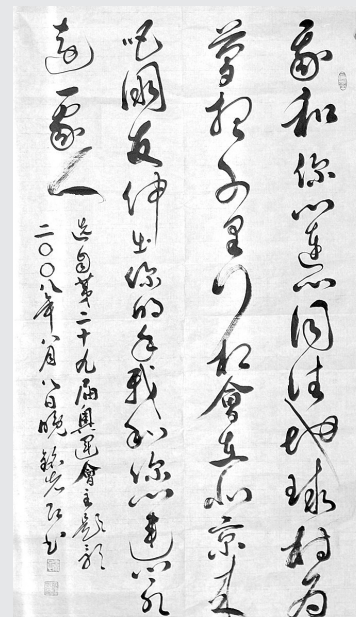 我和你心連心同住地球村為
夢想千里行相會在北京來
吧朋友伸出你的手我和你心連心永
遠一家人
選自第二十九屆奧運會主題歌
二〇〇八年八月八日晚 書